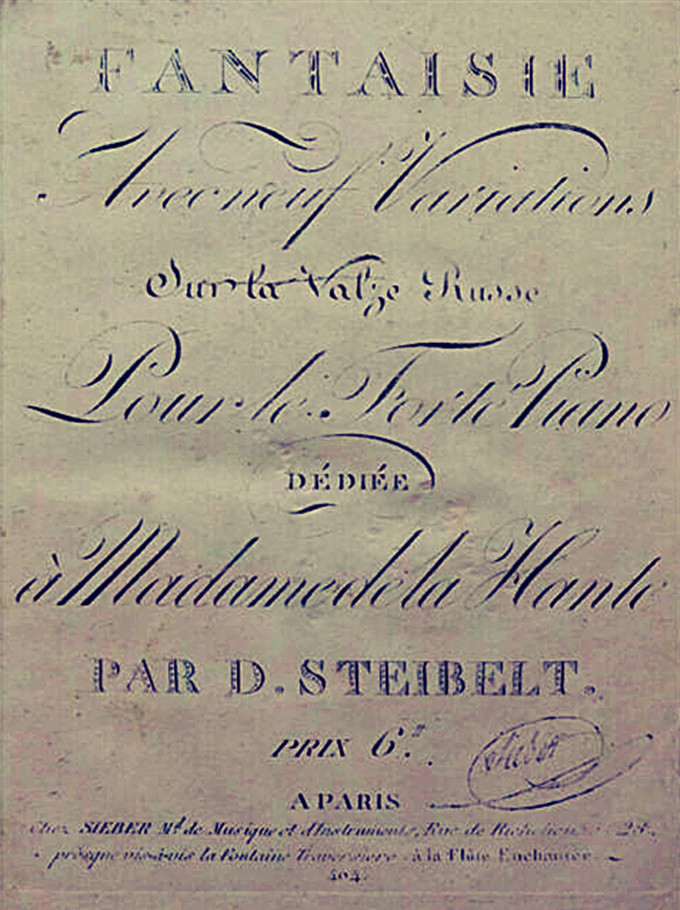 FANTAISIE
Avec neuf Variations
Sur la Valze Russe
Pour le Forte Piano
DÉDIÉE
à Madame de la Hante
PAR D. STEIBELT.
PRIX 6.tt
A PARIS
Chez SIEBER Md. de Musique et d'Instruments, Rue de Richelieu
presque vis-à-vis la Fontaine Traversiere à la Flûte Enchantée